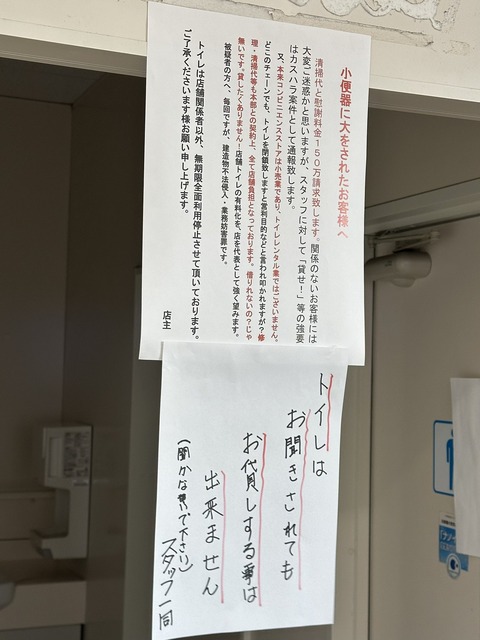 小便器に大をされたお客様へ
清掃代と慰謝料金150万請求致します。関係のないお客様には
大変ご迷惑かと思いますが、スタッフに対して「貸せ!」等の強要
はカスハラ案件として通報致します。
又、本来コンビニエンスストアは小売業であり、トイレレンタル業ではございません。
どこのチェーンでも、トイレを閉鎖致しますと営利目的などと言われ叩かれますが?修
理・清掃代等も本部との契約上、全て店舗負担となっております。借りれないの?じゃ
無いです。貸したくありません!店舗トイレの有料化を、店を代表として強く望みます。
被疑者の方へ、毎回ですが、建造物不法侵入・業務妨害罪です。
トイレは店舗関係者以外、無期限全面利用停止させて頂いております。
ご了承くださいます様お願い申し上げます。
店主
トイレは
お聞きされても
お貸しする事は
出来ません
(聞かな いで下さい)
スタッフ一同